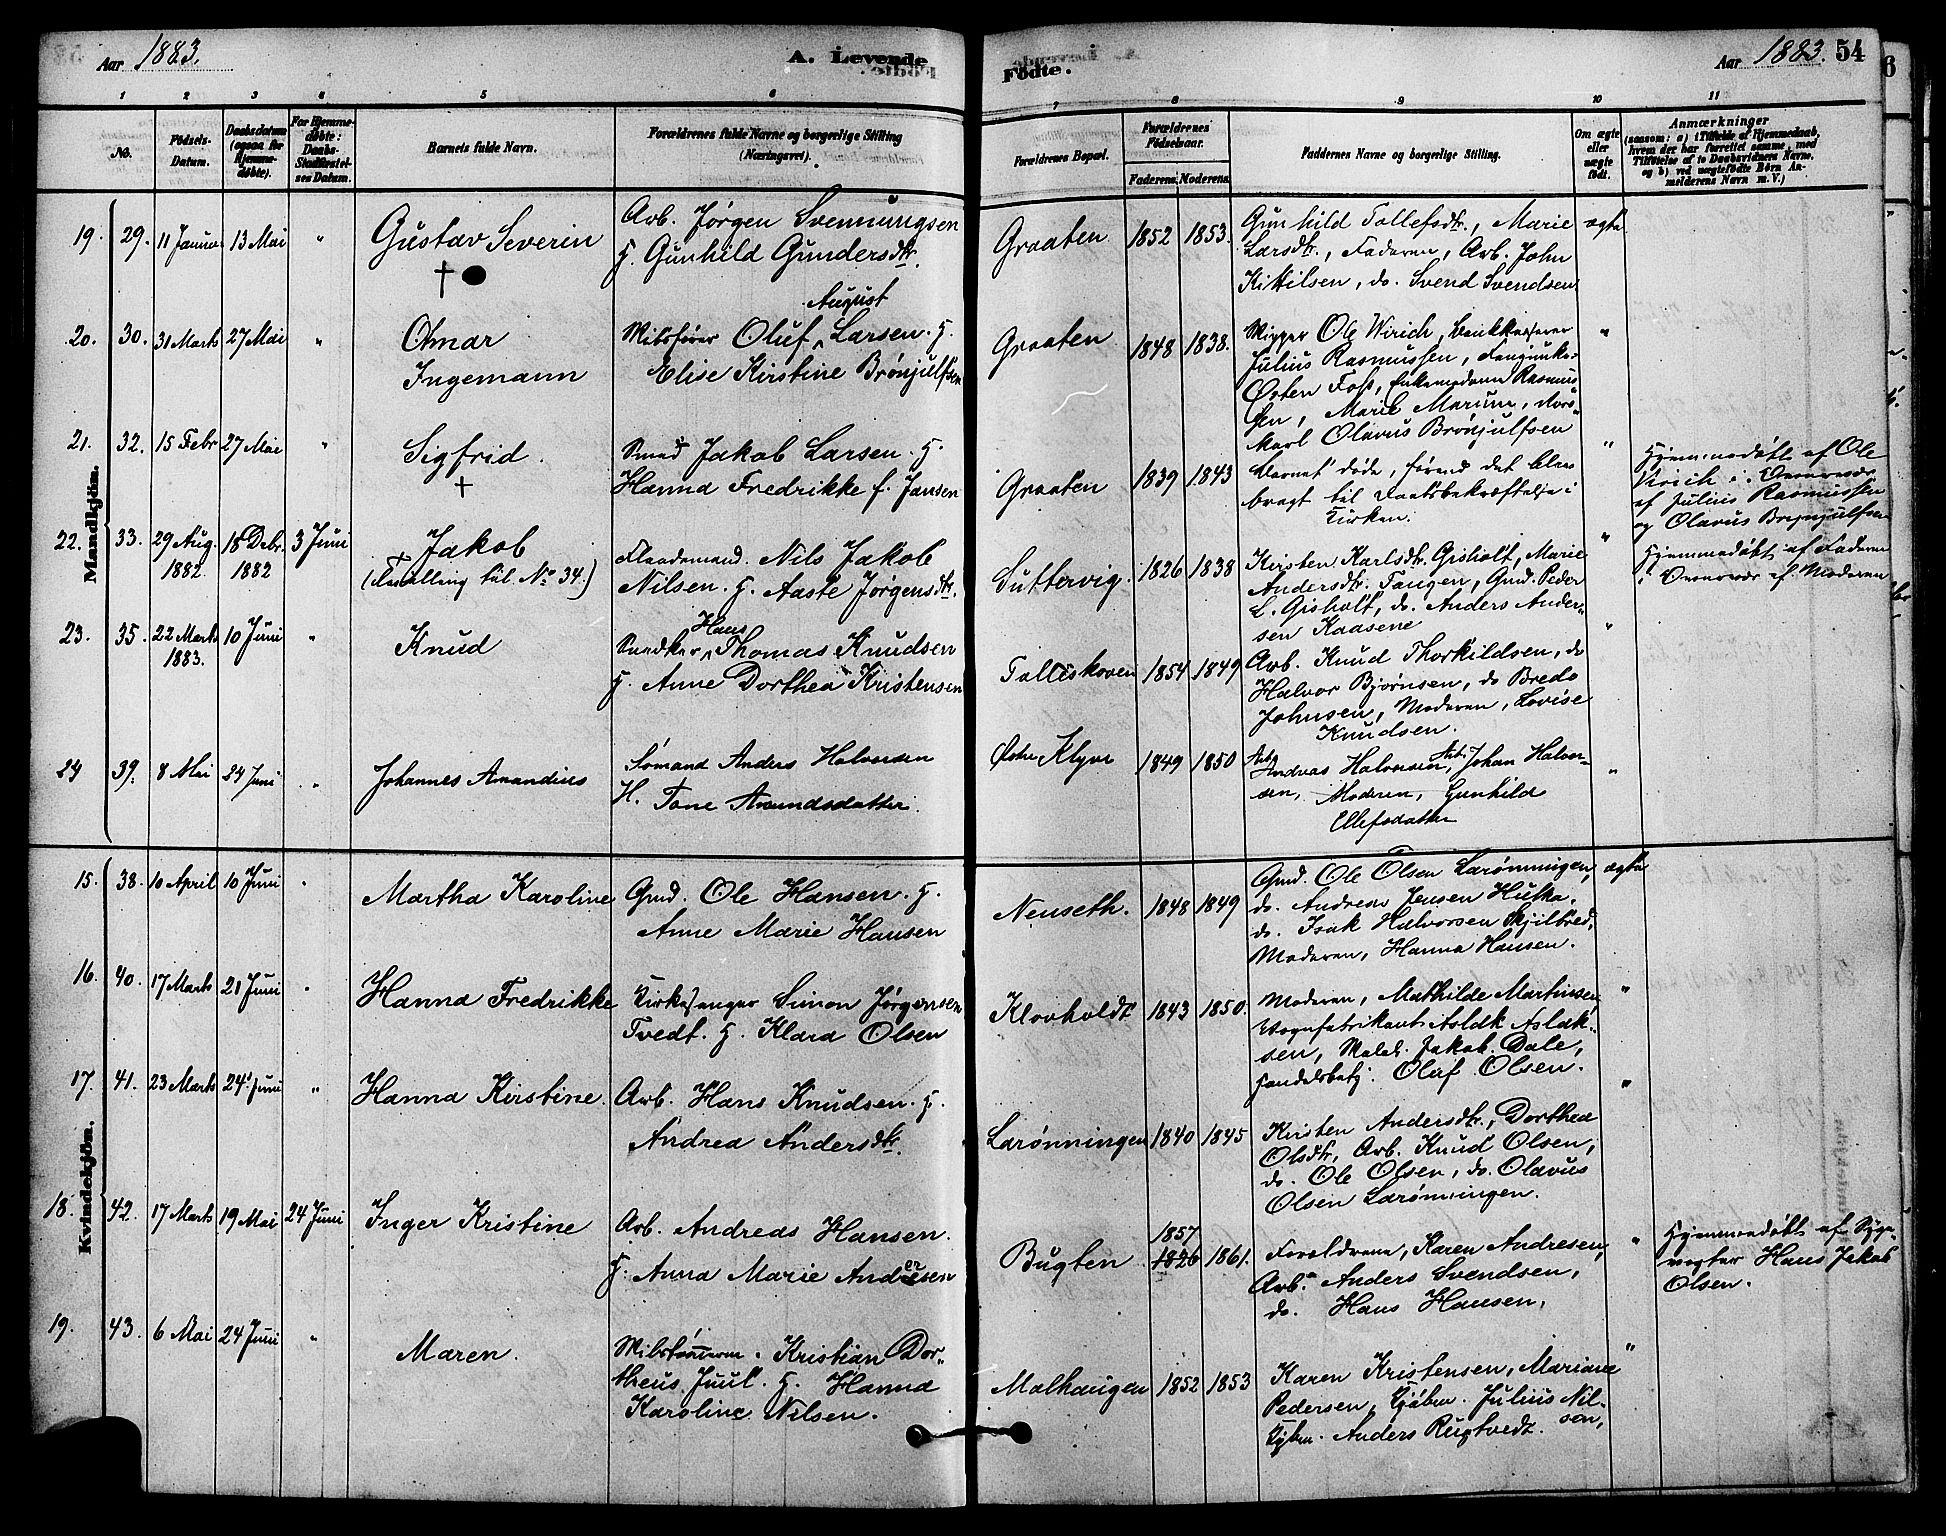 Aar 1883.
A. Levende
Fødte.
Aar 1883. 54
1 2 3 4 5 6 7 8 9 10 11
No.
Fødsels-Datum.
Daabsdatum (ogsaa for Hjemmedøbte).
For Hjemmedøbte: Daabs-Stadfæstelses Datum.
Barnets fulde Navn.
Forældrenes fulde Navne og borgerlige Stilling (Næringsvei).
Forældrenes Bopæl.
Forældrenes Fødselsaar.
Faderens. Moderens.
Faddernes Navne og borgerlige Stilling.
Om ægte eller uægte født.
Anmærkninger
(saasom: a) i Tilfælde af Hjemmedaab, hvem der har forrettet samme, med Tilføielse af to Daabsvidners Navne, og b) ved uægtefødte Børn Anmelderens Navn m. V.)
Mandkjön.
19. 29. 11 Januar 13 Mai " Gustav Severin †
Arb. Jørgen Svennungsen
H. Gunhild Gundersdtr.
Graaten 1852 1853.
Gunhild Tollefsdtr., Marie
Larsdtr., Faderen, Arb. John
Kittilsen, do. Svend Svendsen
ægte
20. 30. 31 Marts 27 Mai " Otmar
Ingemann
August
Oluf Larsen. H.
Elise Kirstine Brønjulfsen
Graaten 1848 1838.
Skipper Ole Wirich,
Julius Rasmussen,
Østen Foss, Enkemadame Rasmus
sen, Marie
Olavus Brønjulfsen
"
21. 32. 15 Febr 27 Mai " Sigfrid. †
Smed Jakob Larsen. H.
Hanna Fredrikke f. Jansen
Graaten 1839 1843
Barnet døde, førend det blev
bragt til Daabsbekræftelse i
Kirken.
"
Hjemmedøbt af Ole
Virich i Overvær
af Julius Rasmussen
og Olavus Brynjulfsen
22. 33. 29 Aug. 1882 18 Debr. 1882 3 Juni † Jakob
(Tvilling til No 34.)
Nils Jakob
Nilsen. H. Aaste Jørgensdtr.
Suttervig. 1826 1838
Kirsten Karlsdtr. Gisholt, Marie
Andersdtr. Tangen, Gmd. Peder
L. Gisholt, do. Anders Ander-
sen Kaasene
"
Hjemmedøbt af Faderen
i Overvær af Moderen
23. 35. 22 Marts 1883. 10 Juni " Knud
Hans
Snedker Thomas Knudsen
H. Anne Dorthea Kristensen
Falleskoven 1854 1849
Arb. Knud Thorkildsen, do
Halvor Bjørnsen, do Bredo
Johnsen, Moderen, Lovise
Knudsen.
"
24 39. 8 Mai 24 Juni " Johannes Amandius
Sømand Anders Halvorsen
H. Tone Amundsdatter.
Østre Klyve 1849 1850
Arb Andreas Halvorsen, Arb. Johan Halvor-
sen, Moderen, Gunhild
Ellefsdatter
"
Kvindekjön.
15. 38. 10 April 10 Juni " Martha Karoline
Gmd. Ole Hansen. H.
Anne Marie Hansen
Nenseth. 1848 1849
Gmd. Ole Olsen Larønningen,
do. Andreas Jensen
do. Isak Halvorsen Skjilbred,
Moderen, Hanna Hansen.
ægte
16. 40. 17 Marts 21 Juni " Hanna Fredrikke
Kirkesanger Simon Jørgensen
Tvedt. H. Klara Olsen
Klovholdt 1843 1850.
Moderen, Mathilde Martinsen,
Vognfabrikant Aslak Aslak-
sen, Maler Jakob Dale,
Handelsbetj. Oluf Olsen.
"
17. 41. 23 Marts 24 Juni " Hanna Kirstine.
Arb. Hans Knudsen. H.
Andrea Andersdtr.
Larønningen 1840 1845
Kirsten Andersdtr., Dorthea
Olsdtr, Arb. Knud Olsen,
do. Ole Olsen, do. Olavus
Olsen Larønningen.
"
18. 42. 17 Marts 19 Mai 24 Juni Inger Kristine
Arb. Andreas Hansen.
H. Anna Marie Andersen
Bugten 1857 1826 1861.
Forældrene, Karen Andresen,
Arb. Anders Svendsen,
do. Hans Hansen,
"
Hjemmedøbt af Syge-
vogter Hans Jakob
Olsen.
19. 43. 6 Mai 24 Juni " Maren.
Kristian Dor-
theus Juul. H. Hanna
Karoline Nilsen.
Malhaugen 1852 1853
Karen Kristensen, Mariane
Pedersen, Kjøbm. Julius Nil-
sen, Kjbm. Anders Rugtvedt.
"